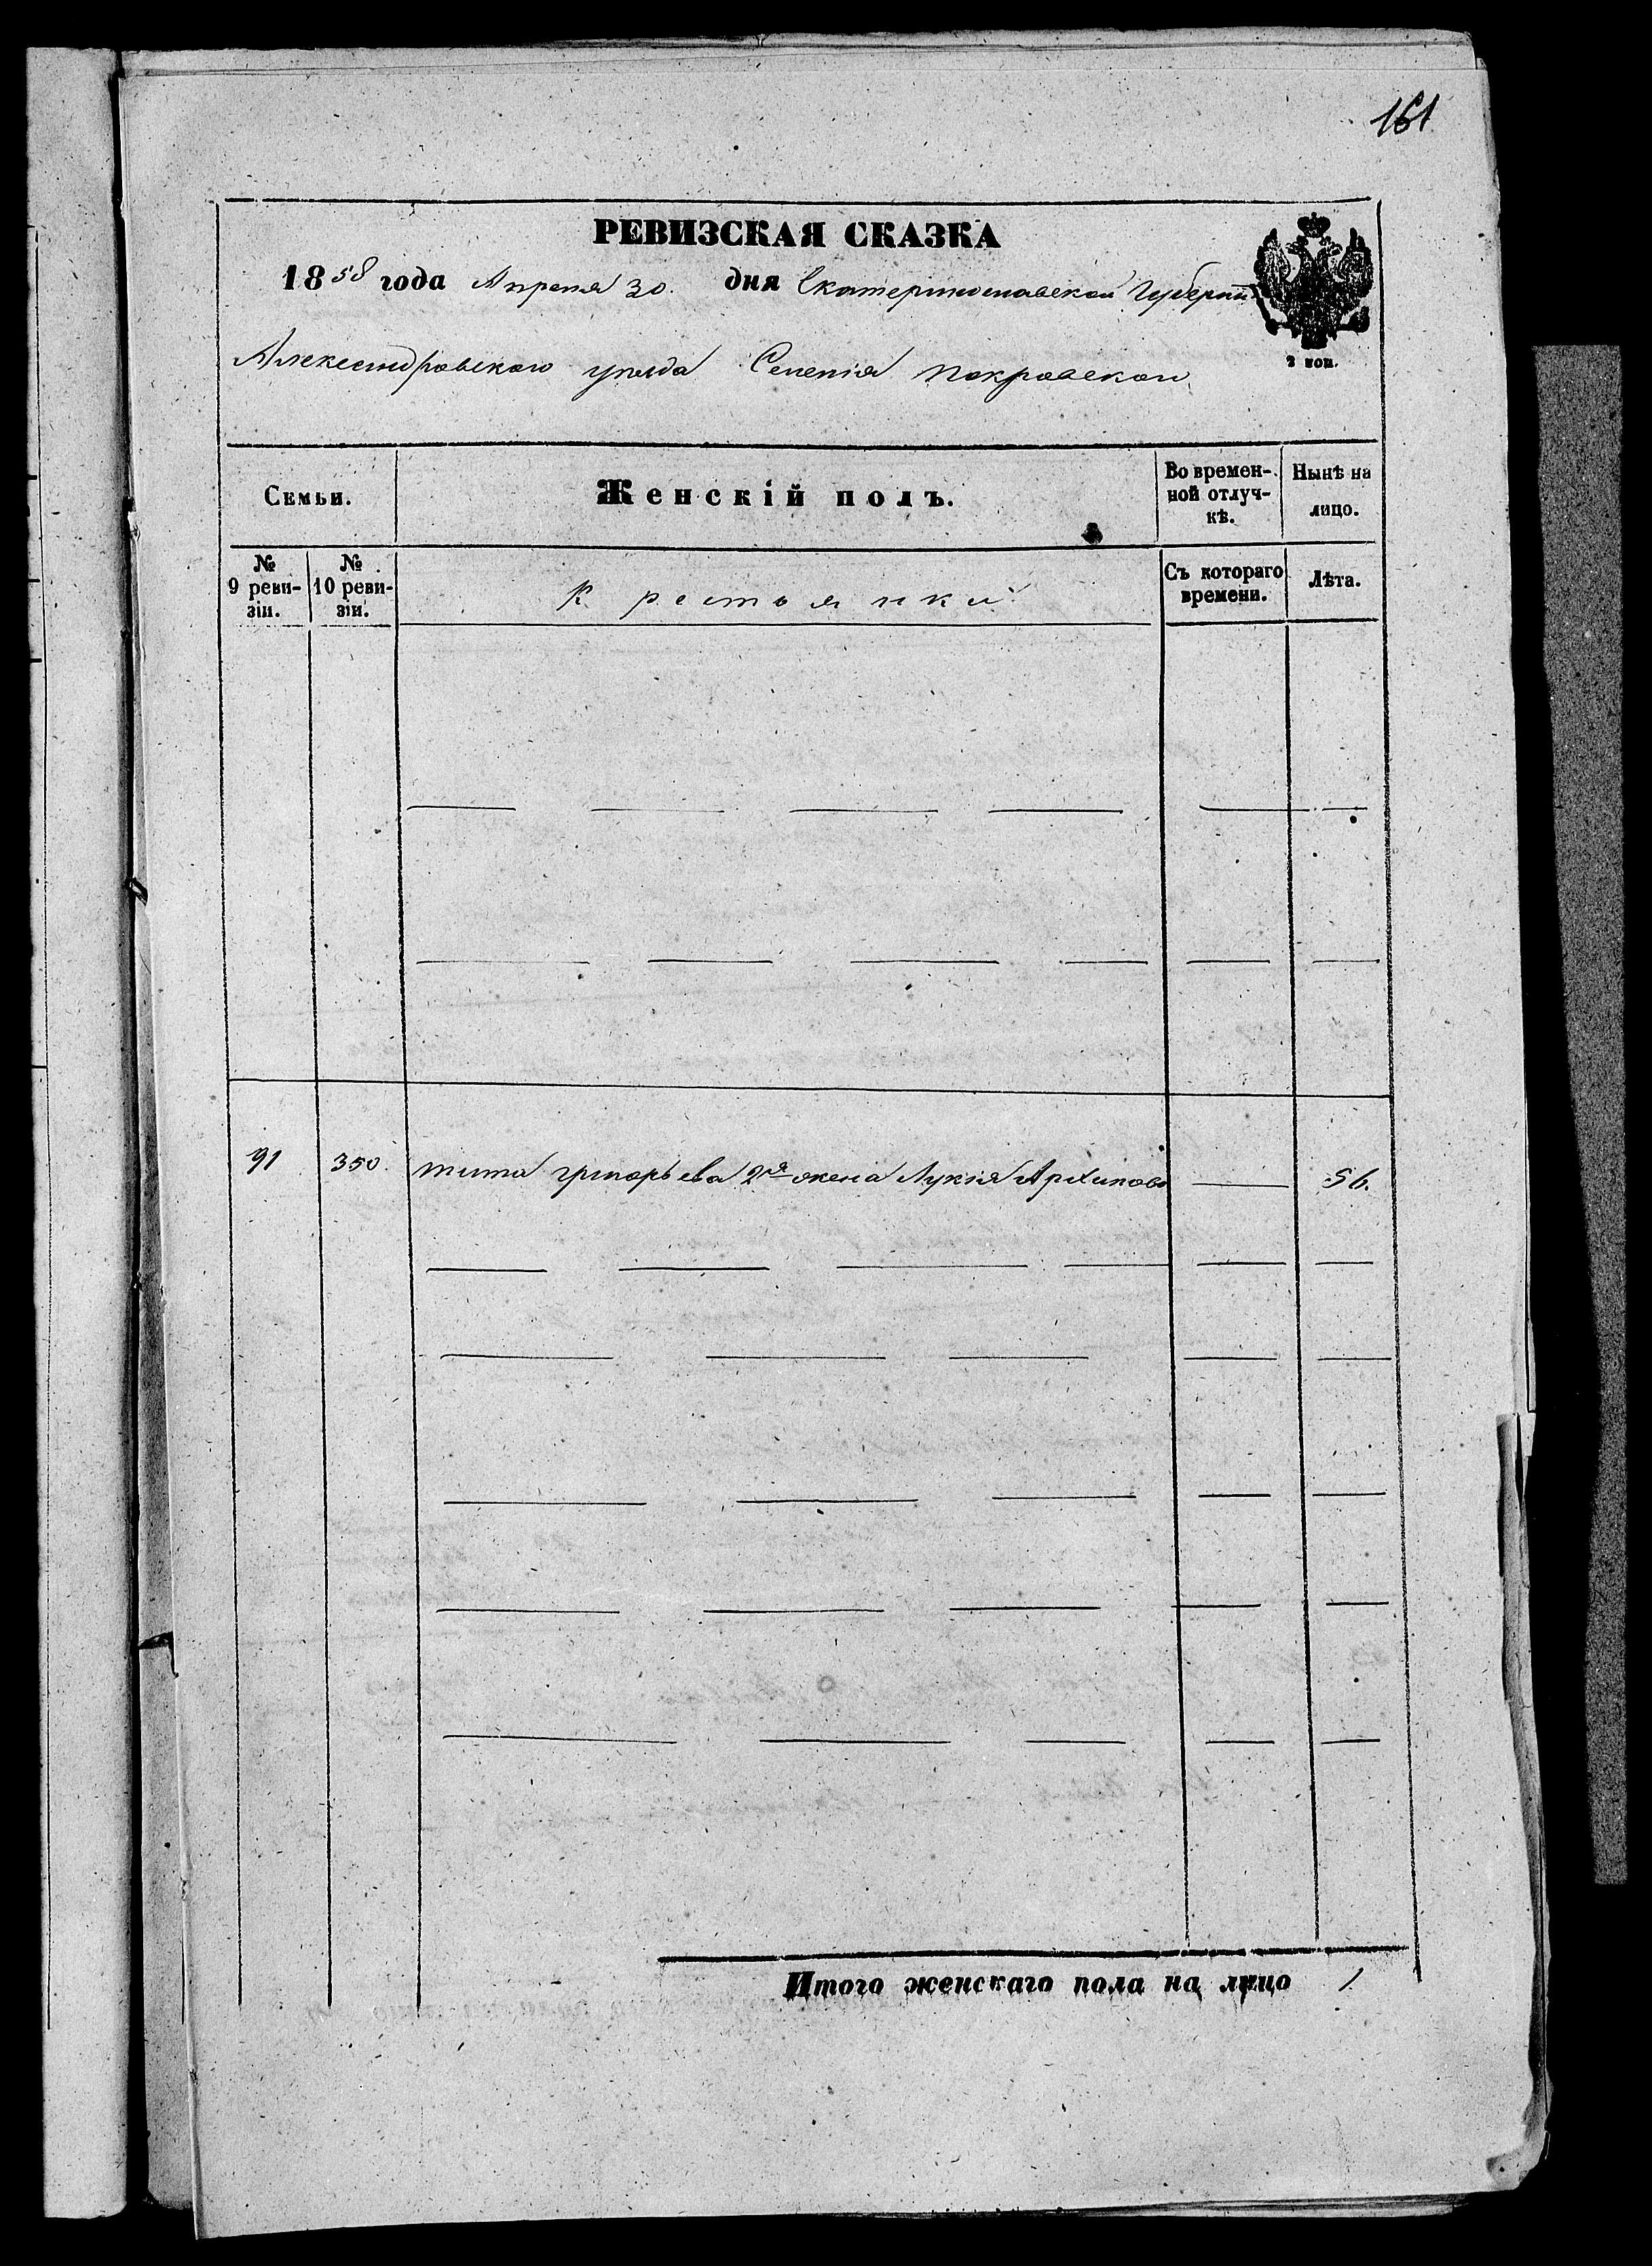 161
РЕВИЗСКАЯ СКАЗКА
1858 года Апреля 30. дня Екатеринославской Губерніи
2 коп.
Александровского уезда Селенія Покровского
Семьи.
Женскій полъ.
Во времен-
ной отлуч-
кѣ.
Нынѣ на
лицо.
№
9 реви-
зіи.
№
10 реви-
зіи.
Крестьянки
Съ котораго
времени.
Лѣта.
91 350. Тита григорьева 2я жена Лукия Архипова — 56.
Итого женскаго пола на лицо 1.